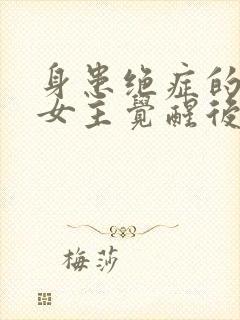 身患绝症的
女主觉醒後
梅莎